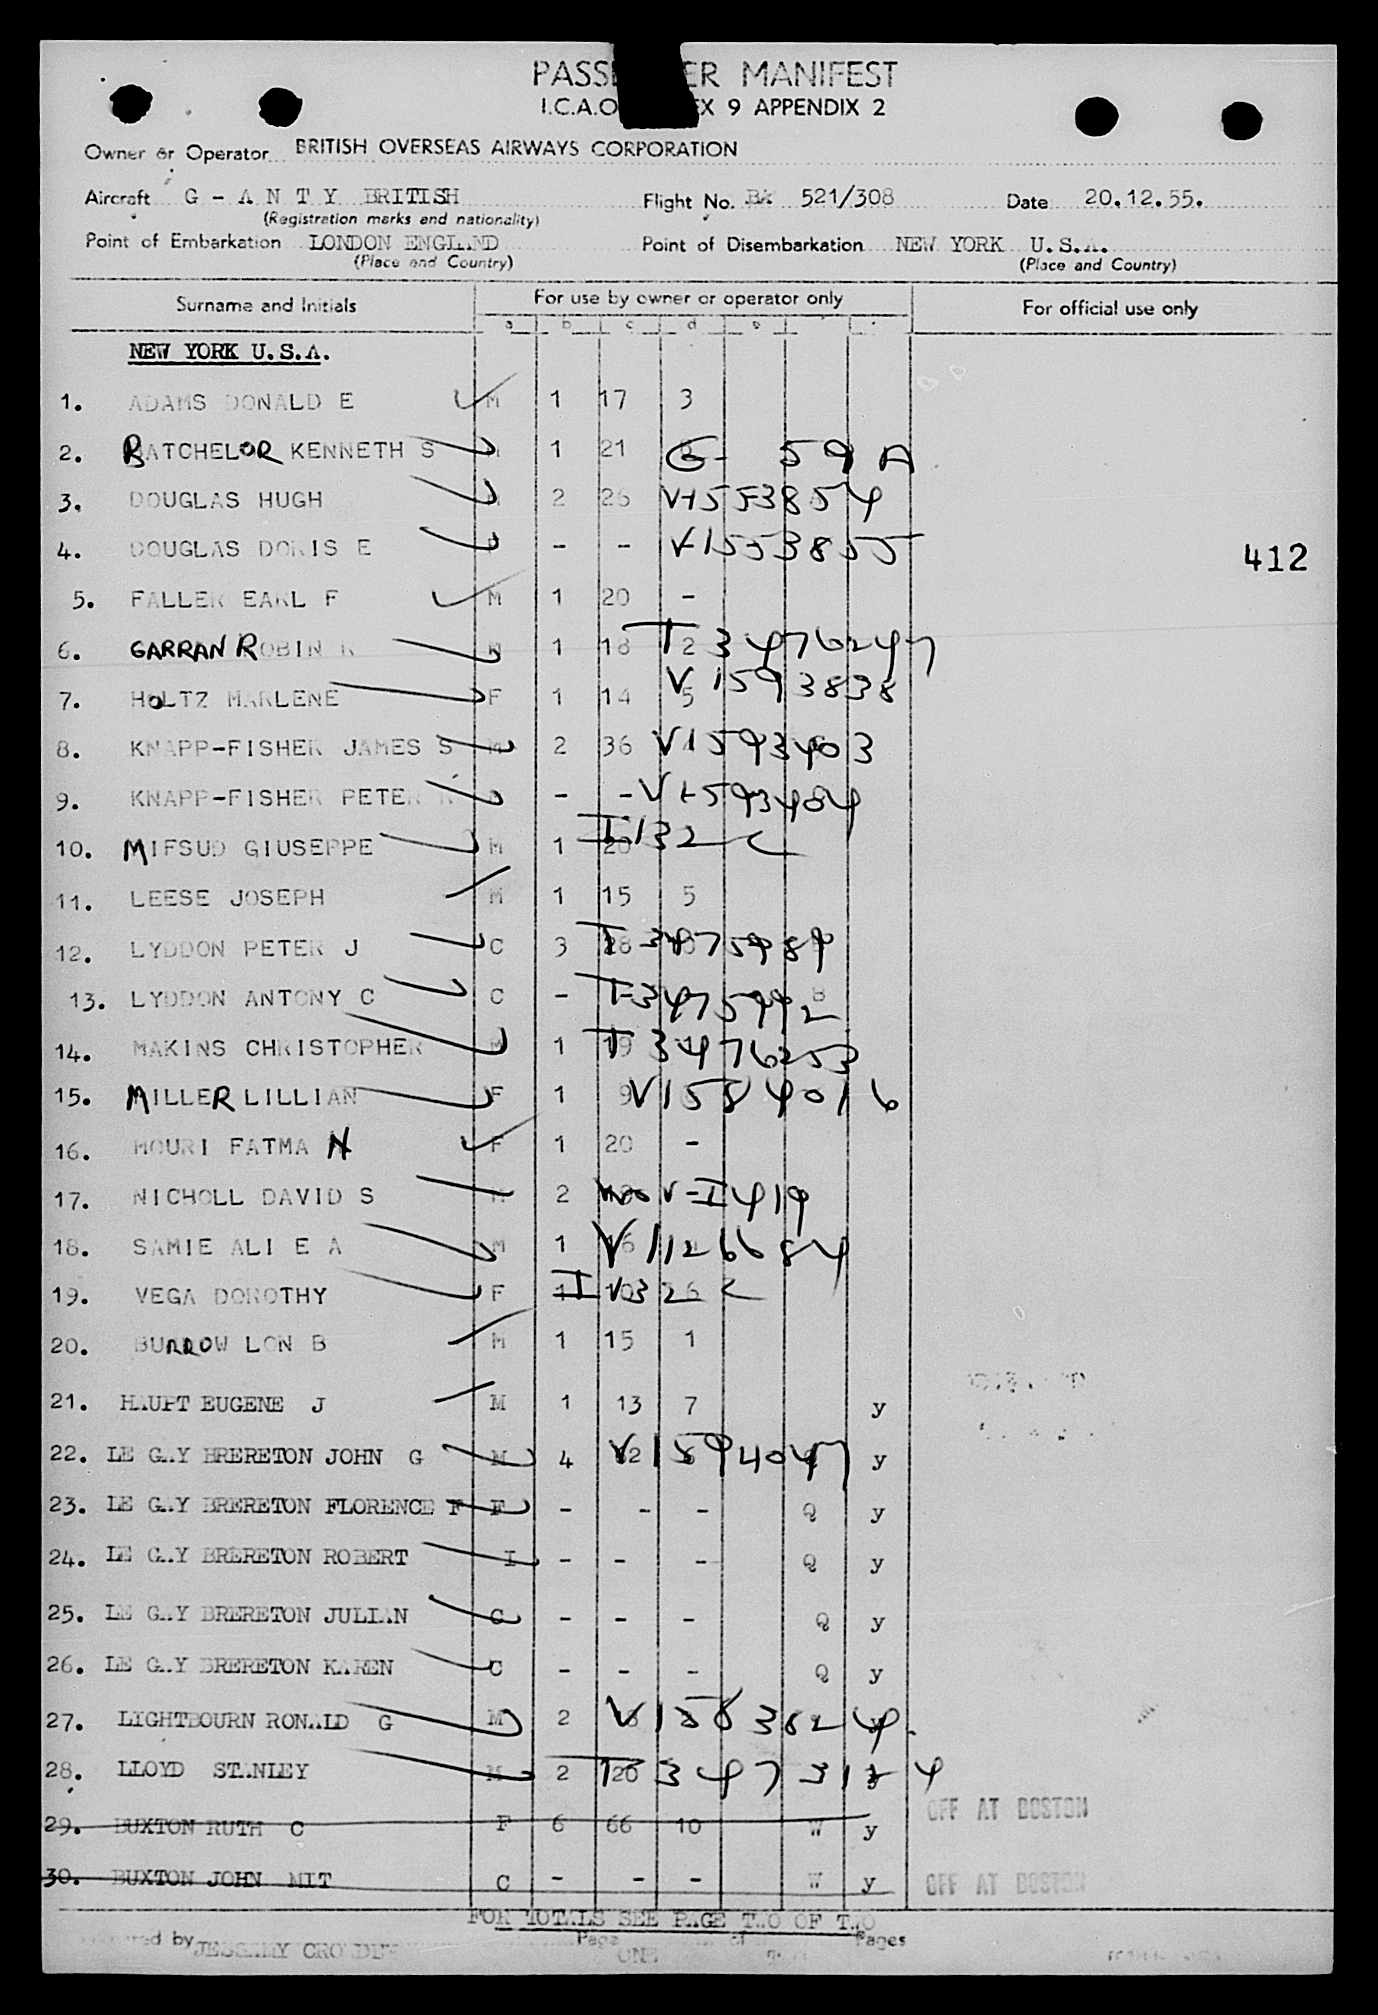 PASSENGER MANIFEST
I.C.A.O. EX 9 APPENDIX 2
Owner or Operator BRITISH OVERSEAS AIRWAYS CORPORATION
Aircraft G - A N T Y BRITISH Flight No. BA 521/308 Date 20.12.55.
(Registration marks and nationality)
Point of Embarkation LONDON ENGLAND Point of Disembarkation NEW YORK U.S.A.
(Place and Country) (Place and Country)
Surname and Initials For use by owner or operator only For official use only
a b c d e
NEW YORK U.S.A.
1. ADAMS DONALD E M 1 17 3
2. BATCHELOR KENNETH S 1 21 G- 59 A
3. DOUGLAS HUGH 2 26 V-1553854
4. DOUGLAS DORIS E - - V-1553855
412
5. FALLER EARL F M 1 20 -
6. GARRAN ROBIN R M 1 18 2 I 3476247
7. HOLTZ MARLENE F 1 14 5 V 1593838
8. KNAPP-FISHER JAMES S M 2 36 V1593403
9. KNAPP-FISHER PETER - - V1593404
10. MIFSUD GIUSEPPE M 1 20 I 132 C
11. LEESE JOSEPH M 1 15 5
12. LYDDON PETER J C 3 28 I 3475989
13. LYDDON ANTONY C C - I-3475992 B
14. MAKINS CHRISTOPHER M 1 19 I 3476253
15. MILLER LILLIAN F 1 9 V1584016
16. MOURI FATMA N F 1 20 -
17. NICHOLL DAVID S M 2 V-I419
18. SAMIE ALI E A M 1 16 V1126684
19. VEGA DOROTHY F 1 10 6 I V32 C
20. BURROW LON B M 1 15 1
21. HAUPT EUGENE J M 1 13 7 y
22. LE GAY BRERETON JOHN G M 4 V1594047 y
23. LE GAY BRERETON FLORENCE F F - - - Q y
24. LE GAY BRERETON ROBERT I - - - Q y
25. LE GAY BRERETON JULIAN C - - - Q y
26. LE GAY BRERETON KAREN C - - - Q y
27. LIGHTBOURN RONALD G M 2 V1583824 y
28. LLOYD STANLEY M 2 20 I 3473124 y
29. BUXTON RUTH C F 6 66 10 W y OFF AT BOSTON
30. BUXTON JOHN MIT C - - - W y OFF AT BOSTON
FOR TOTALS SEE PAGE TWO OF TWO
by Page ONE of Pages